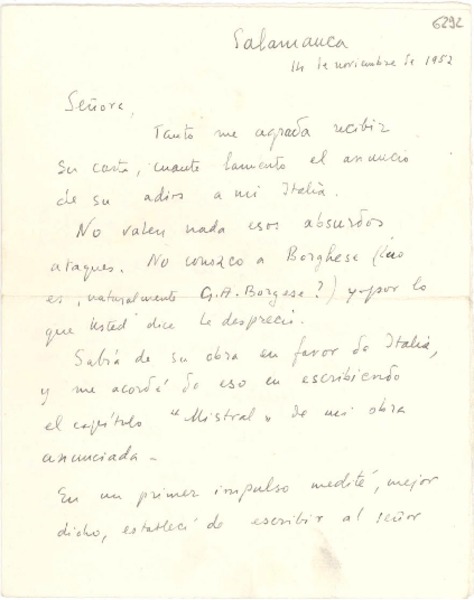 6292
Salamanca
14 de noviembre de 1952
Señora,
Tanto me agrada recibir
su carta, cuanto lamento el anuncio
de su adios a mi Italia.
No valen nada esos absurdos
ataques. No conozco a Borghese (¿no
es, naturalmente G. A. Borgese?) y por lo
que Usted dice le desprecio.
Sabía de su obra en favor de Italia,
y me acordé de eso en escribiendo
el capítulo "Mistral" de mi obra
anunciada.
En un primer impulso medité, mejor
dicho, establecí de escribir al señor